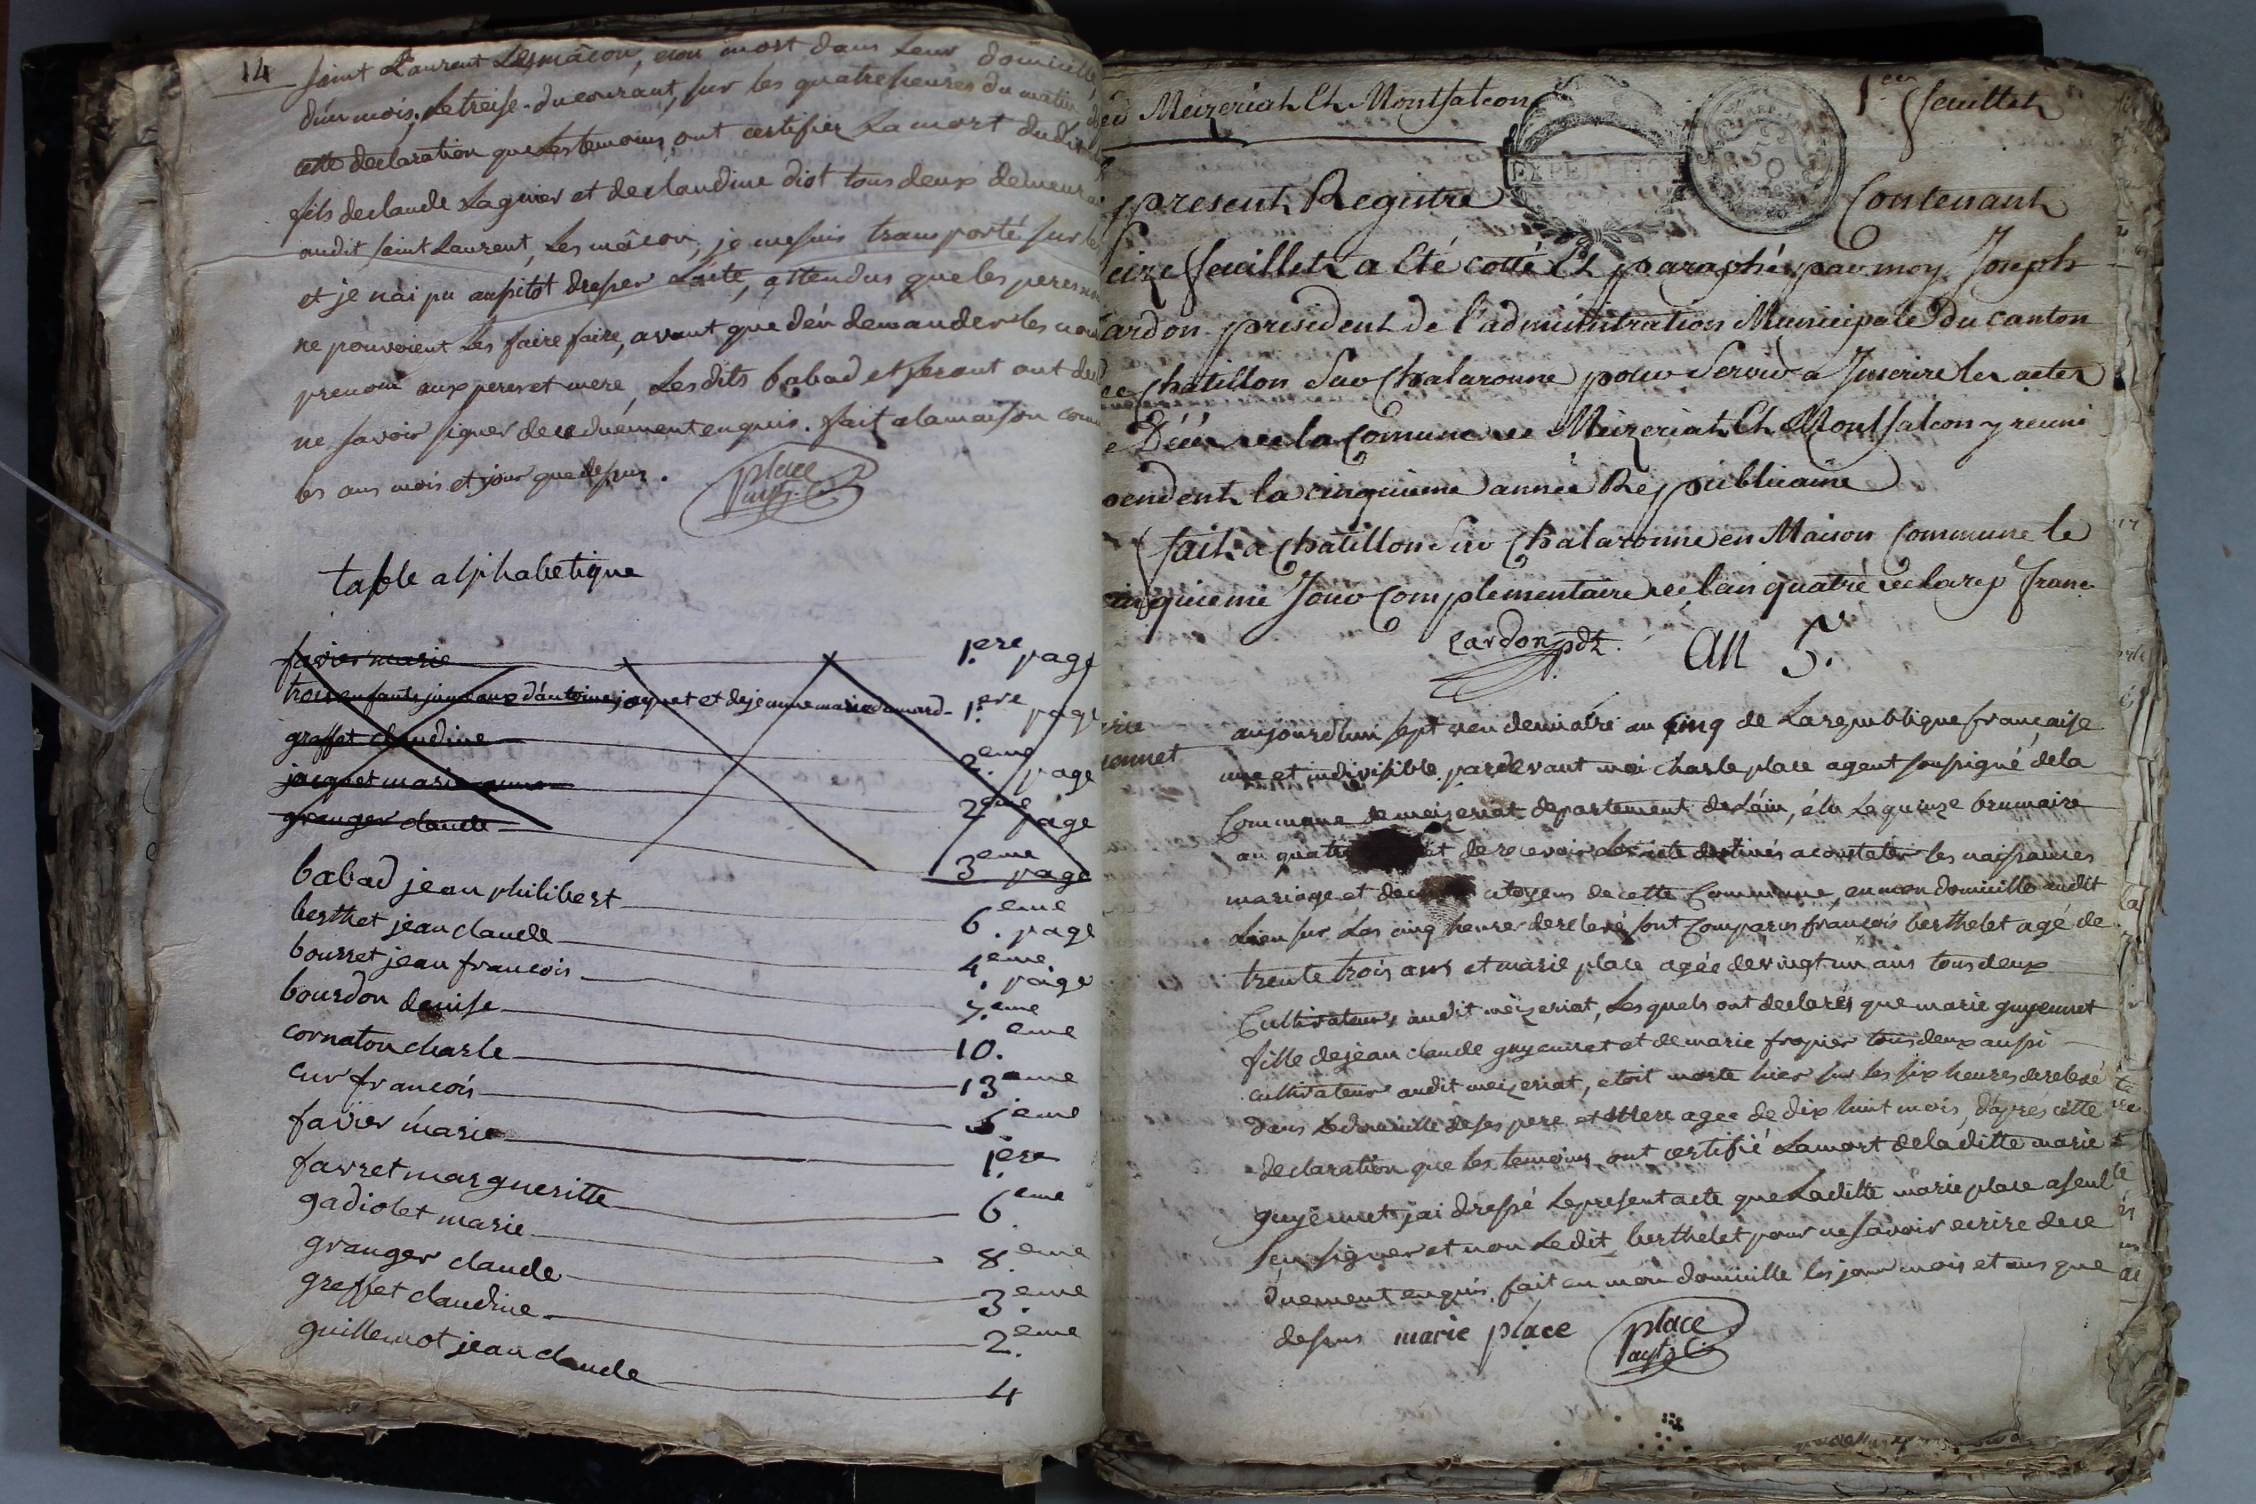 14
saint Laurent Lesmâcon, etoit mort dans leur domicille,
d'un mois, le treise du courant, sur les quatre heures du matin,
cette declaration que les temoins ont certifier la mort dudit
fils de claude Lagnier et de claudine diot tous deux demeur
audit saint Laurent, les mâcon, je me suis transporté sur le
et je n'ai pu aussitot dresser L'acte, attendus que les peres
ne pouvoient les faire faire, avant que d'en demander les nom
prenom aux peres et mere, Les dits babad et ferant ont
ne savoir signer de ce duement enquis. fait a la maison com
les ans mois et jour que dessus.
place
agt.
table alphabetique
favier marie 1.ere page
trois enfants jumeaux d'antoine jayet et de jeanne marie damard 1.ere page
greffet claudine 2.eme page
jacquet marie anne 2eme page
granger claude 3eme page
babad jean philibert 6.eme page
berthet jean claude 4.eme page
bourret jean francois 7.eme
bourdon denise 10.eme
cornaton charle 13eme
cur francois 5ieme
favier marie 1.ere
favret margueritte 6.eme
gadiolet marie 8.eme
granger claude 3.eme
greffet claudine 2.eme
guillemot jean claude 4
Meizeriah Et Montfalcon
1.er feuillet
EXPEDITION
50
present Registre Contenant
seize feuillets a été cotté Et paraphé par moy Joseph
ardon president de l'administration Municipale du canton
de Chatillon Sur Chalaronne pour Servir a Inscrire les actes
de Décès de la Comune de Meizeriah Et Montfalcon y reuni
pendent la cinquieme année Républicaine
fait a Chatillon Sur Chalaronne en Maison Commune le
cinquieme Jour Complementaire de l'an quatre de la rep franc
Cardon pdt. an 5.e
rie
onnet
aujourdhui sept vendemiaire an cinq de La republique française
une et indivisible pardevant moi charle place agent soussigné de la
Commune de meizeriat departement de L'ain, élu Le quinze brumaire
an quatre de recevoir Les acte destinés a constater les naissances
mariage et deces citoyens de cette Commune, en mon domicille audit
Lieu sur Les cinq heures de relevé sont comparus françois berthelet agé de
trente trois ans et marie place agée de vingt un ans tous deux
Cultivateurs audit meizeriat, Lesquels ont declarés que marie guyennet
fille de jean claude guyennet et de marie fropier tous deux aussi
cultivateur audit meizeriat, etoit morte hier sur les six heures de relevé
dans Le domicille de ses pere et Mere agee de dix huit mois, d'après cette
declaration que les temoins ont certifié La mort de la ditte marie
guyennet j'ai dressé Le present acte que La ditte marie place a seul
seu signer et non Le dit berthelet pour ne savoir ecrire de ce
duement enquis, fait en mon domicille les jour mois et ans que
dessus marie place place
agt